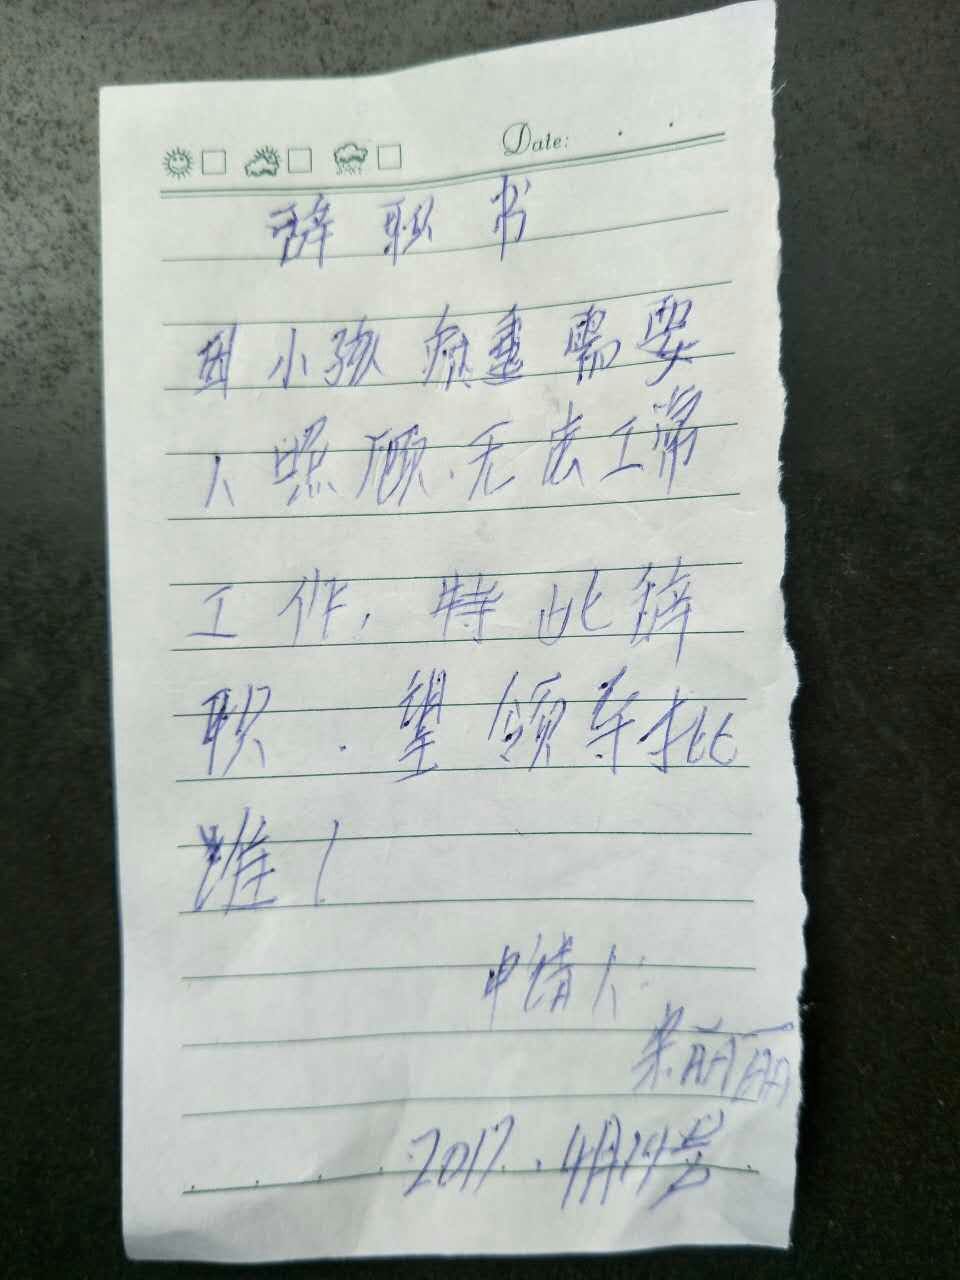 Date:
辞职书
因小孩病重需要
人照顾.无法正常
工作,特此辞
职.望领导批
准!
申请人:
朱丽丽
2017.4月14号